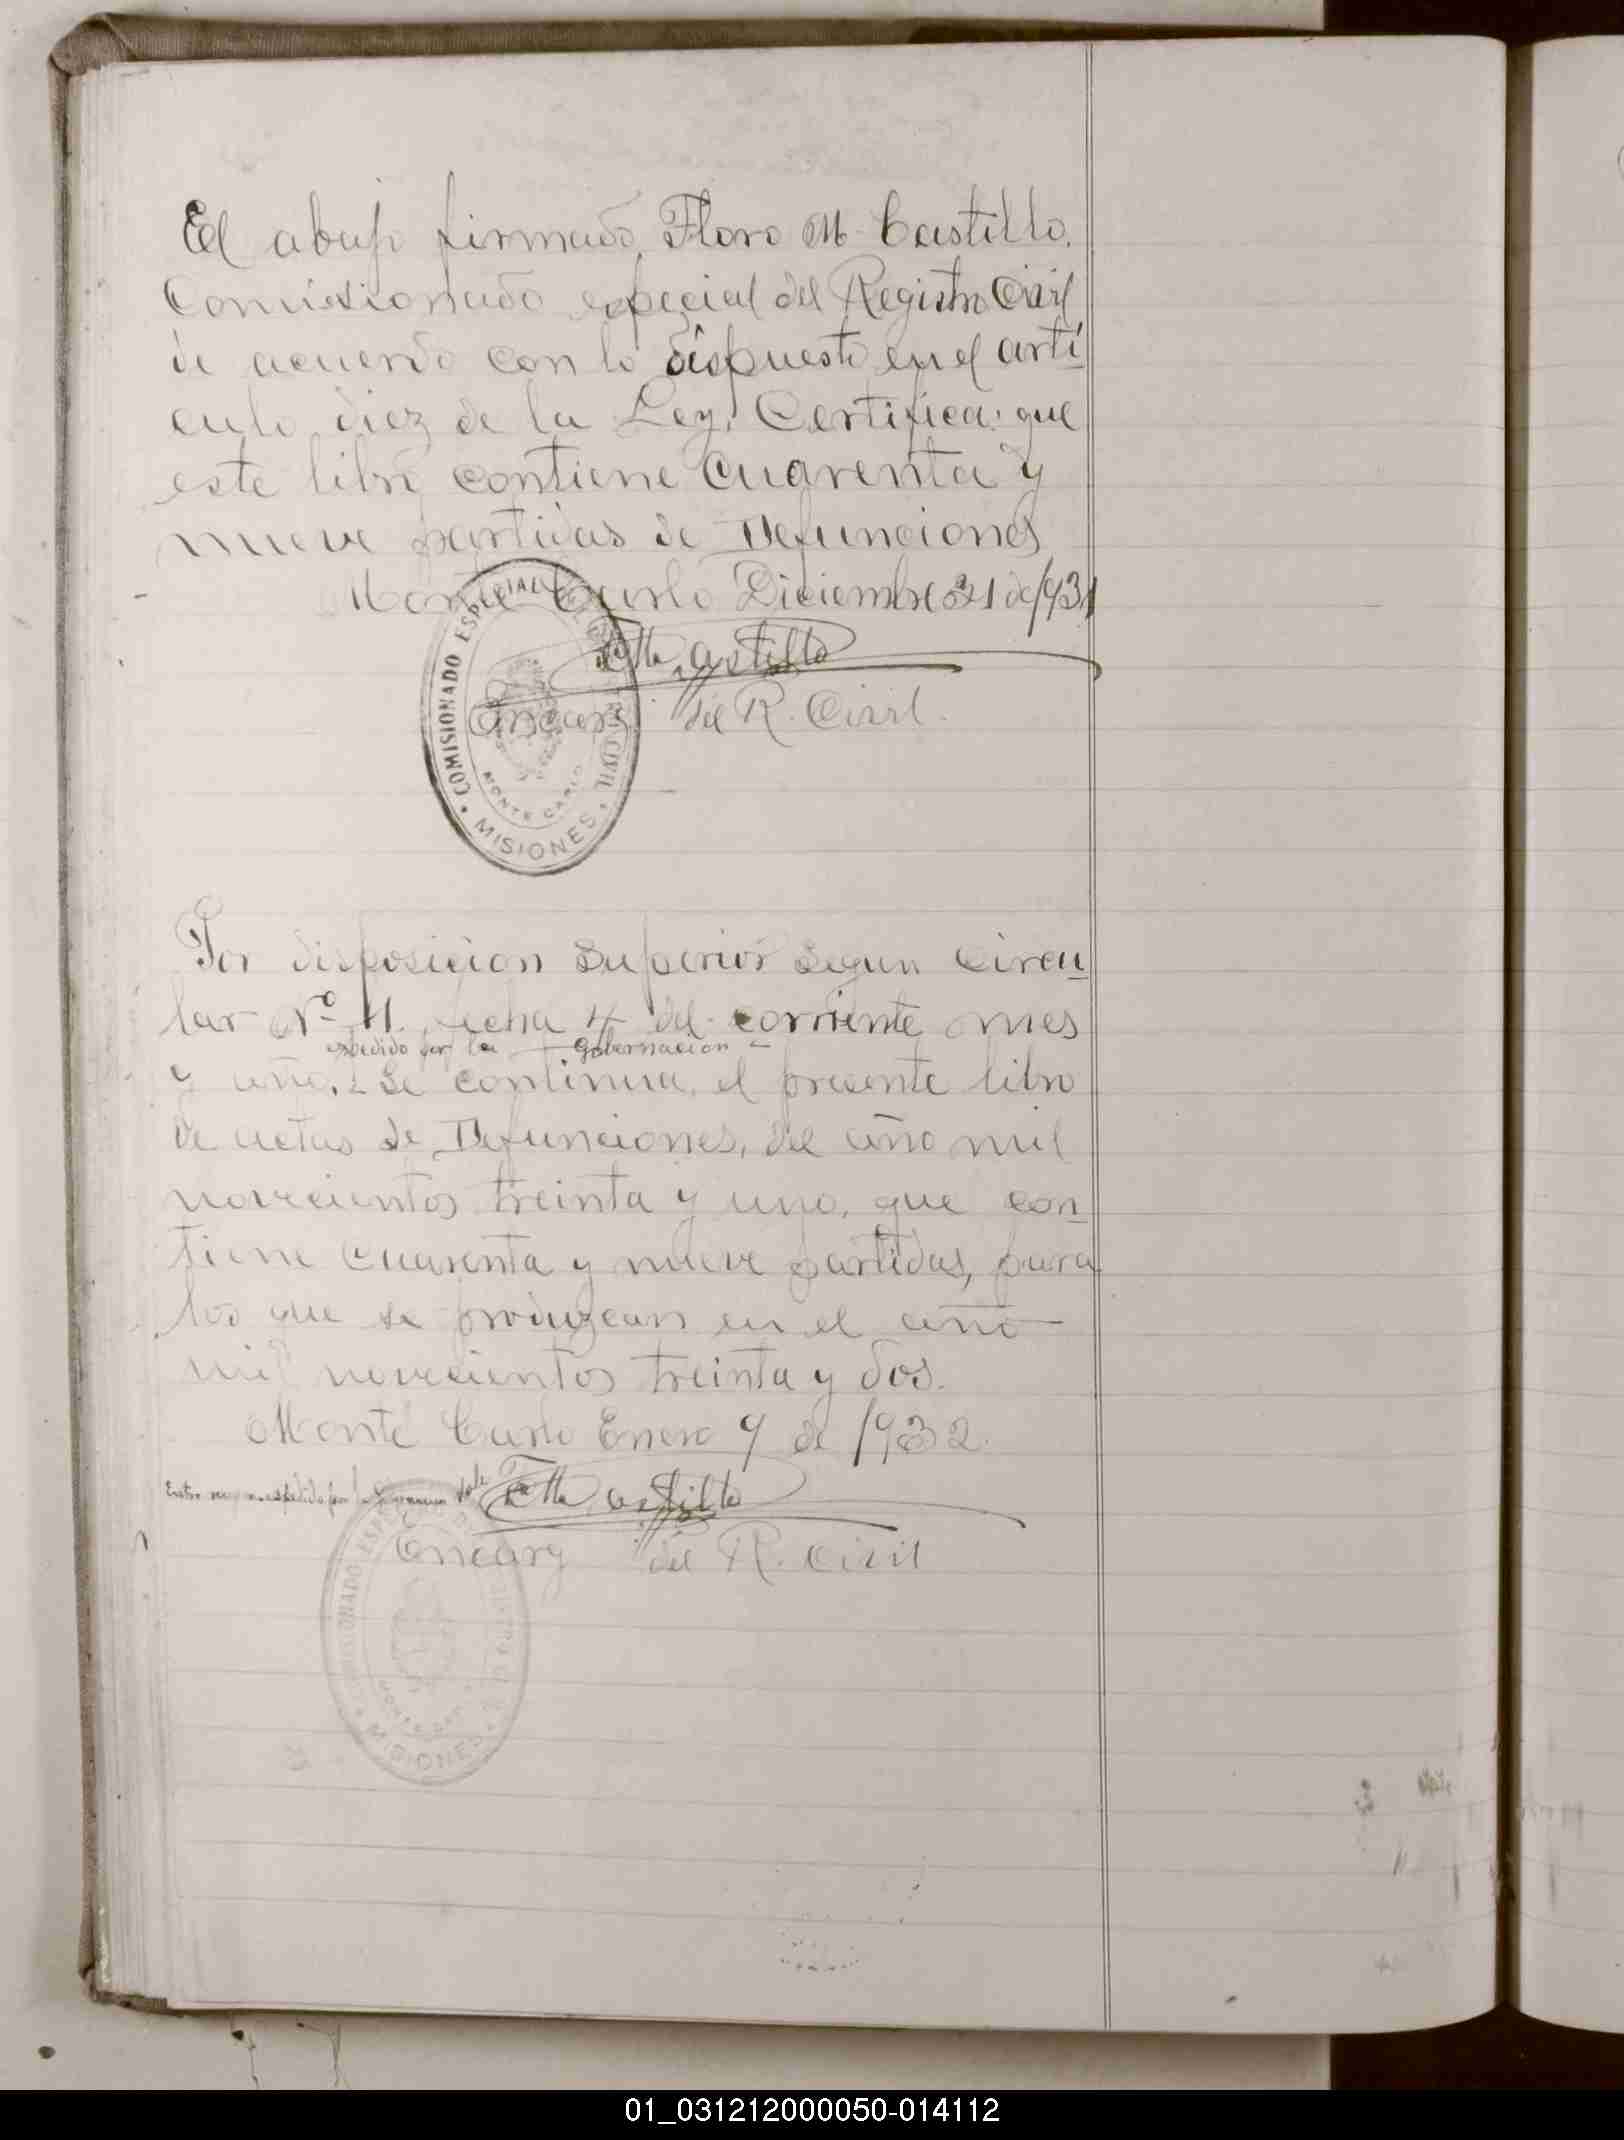 El abajo firmado, Floro M. Castillo,
Comisionado especial del Registro Civil
de acuerdo con lo dispuesto en el artí
culo diez de la Ley, Certifica: que
este libro contiene cuarenta y
nueve partidas de Defunciones
Monte Carlo Diciembre 31 de 1931
F. M. Castillo
Encarg del R. Civil.
COMISIONADO ESPECIAL DEL REGISTRO CIVIL
MONTE CARLO
MISIONES
Por disposicion Superior segun circu
lar Nº 11. fecha 4 del corriente mes
expedido por la Gobernacion
y año. Se continua, el presente libro
de actas de Defunciones, del año mil
novecientos treinta y uno, que con
tiene cuarenta y nueve partidas, para
los que se produzcan en el año
mil novecientos treinta y dos.
Monte Carlo Enero 9 de 1932.
Entre expedido por la Gobernacion Vale
F. M. Castillo
Encarg del R. Civil
COMISIONADO ESPECIAL
MONTE CARLO
MISIONES
01_031212000050-014112